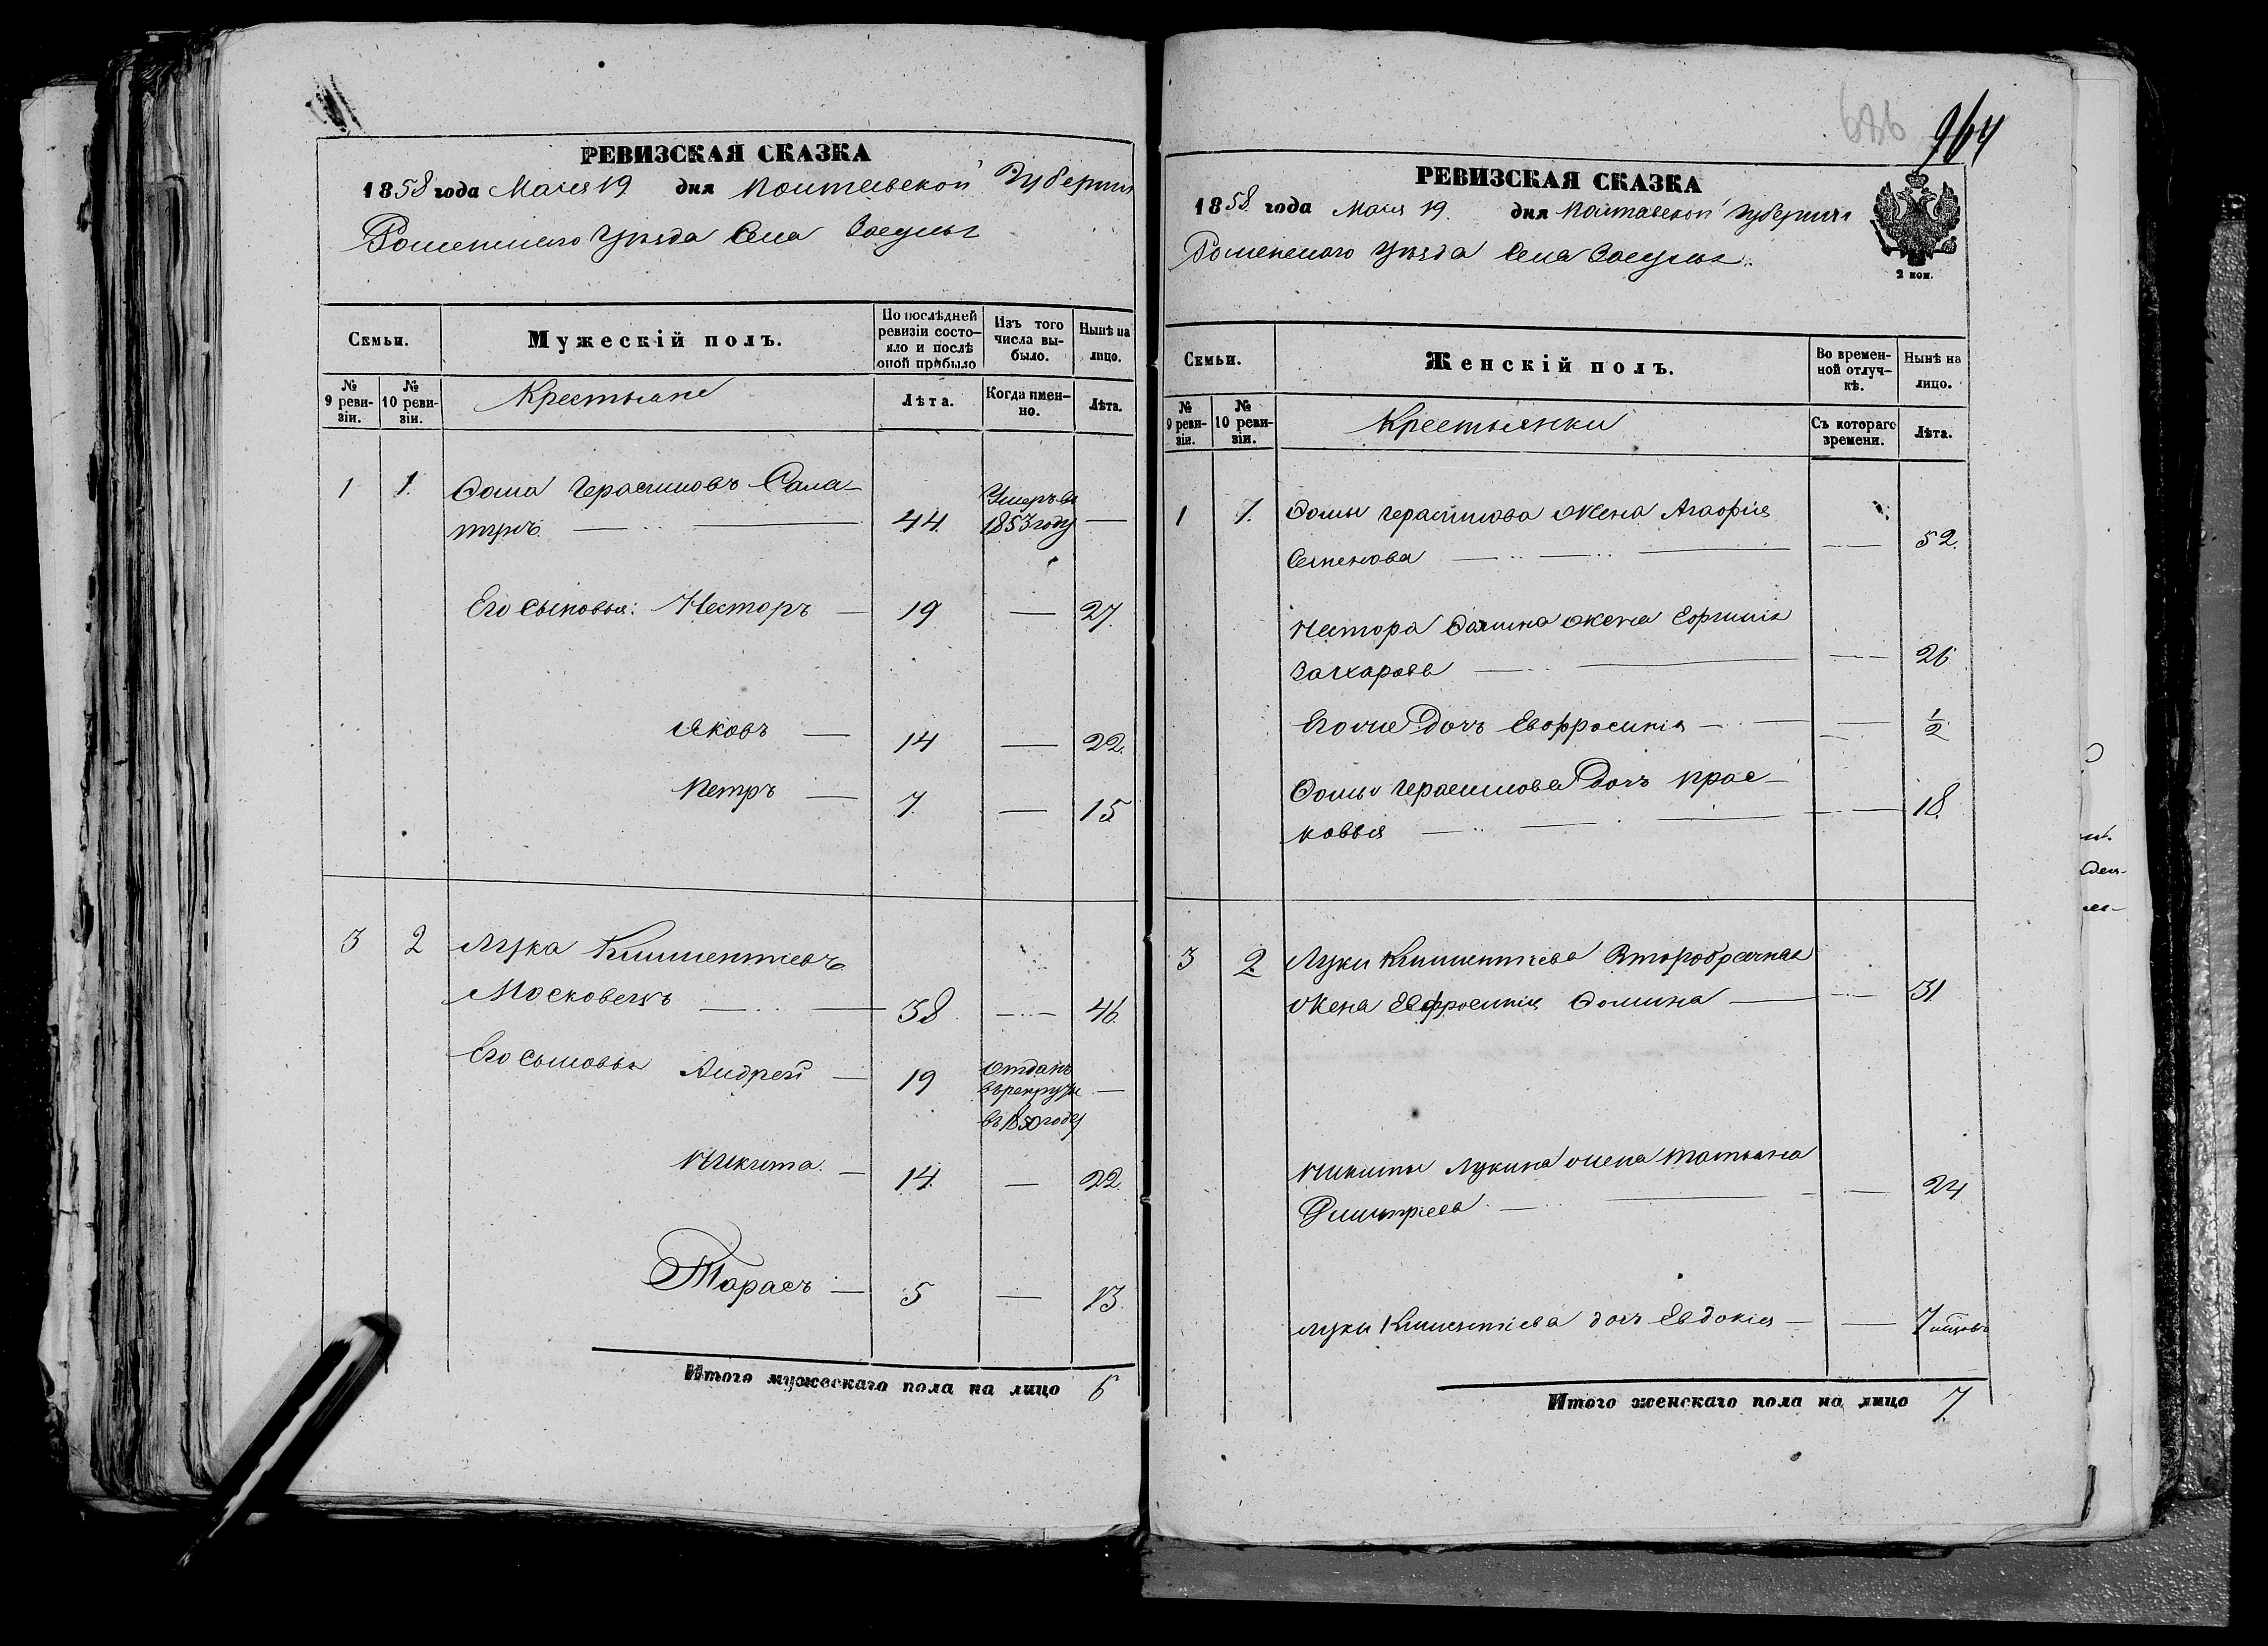 РЕВИЗСКАЯ СКАЗКА
1858 года Мая 19 дня Полтавской Губернии
Роменского Уѣзда Села Засулья
Семьи.
Мужескій полъ.
По послѣдней ревизіи состо-
яло и послѣ
оной прибыло
Изъ того
числа вы-
было.
Нынѣ на
лицо.
№
9 реви-
зіи.
№
10 реви-
зіи.
Крестьяне
Лѣта.
Когда имен-
но.
Лѣта.
1 1. Фома Герасимовъ Сала-
тупъ 44 Умеръ въ
1853 году —
Его сыновья: Несторъ — 19 — 27.
Яковъ — 14 — 22.
Петръ — 7. — 15
3 2 Лука Климентіевъ
Московецъ — 38 — 46.
Его сыновья Андрей — 19 Отданъ
въ рекруты —
въ 1850 году
Никита — 14. — 22.
Тарасъ — 5 — 13.
Итого мужескаго пола на лицо 6
686 964
РЕВИЗСКАЯ СКАЗКА
1858 года Мая 19. дня Полтавской Губерніи
Роменского Уѣзда Села Засулья.
2 коп.
Семьи.
Женскій полъ.
Во времен-
ной отлуч-
кѣ.
Нынѣ на
лицо.
№
9 реви-
зіи.
№
10 реви-
зіи.
Крестьянки
Съ котораго
времени.
Лѣта.
1 1. Фомы Герасимова жена Агафія
Семенова — 52.
Нестора Фомина жена Евгинія
Захарова — 26
Его же дочь Евфросинія — ½
Фомы Герасимова дочь Прас-
ковья — 18.
3 2. Луки Климентіева Второбрачная
жена Евфросинія Фомина — 31.
Никиты Лукина жена Татьяна
Дмитріева — 24
Луки Климентіева дочь Евдокія — 7 мѣсяцовъ
Итого женскаго пола на лицо 7.